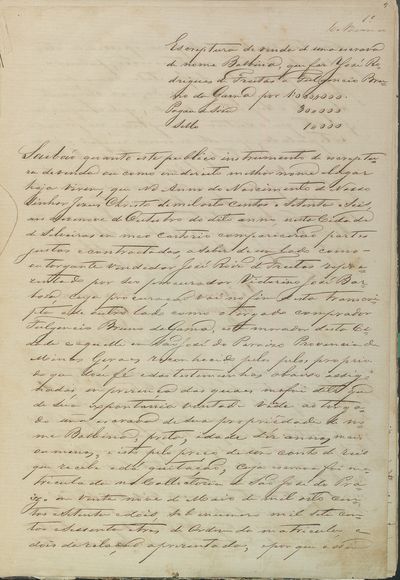 1º
Escriptura de venda d uma escrava
de nome Balbina, que faz José Ro
drigues de Freitas a Fulgencio Bru
no da Gama por 1:000$000.
Pagou de Siza 30$000
Sello 1$000
Saibão quantos este publico instrumento de escriptu
ra de venda ou como em direito melhor nome e lugar
haja virem, que no Anno do Nascimento de Nosso
Senhor Jesus Christo de mil oito centos e Setenta e Seis,
aos dezenove de Outubro do dito anno, nesta Cidade
de Silveiras em meu Cartorio comparecerão partes
justas e contractadas, a saber de um lado como
outorgante vendedor José Rodrigues de Freitas repre
zentado por seu procurador Victorino José Bar
boza, cuja procuração vai no fim desta transcri
pta e de outro lado como outorgado comprador
Fulgencio Bruno da Gama, este morador desta Ci
dade e aquelle em São José do Provincia de
Minas Geraes reconhecido pelos proprios
do que dou fé e das testemunhas abaixo assig
nadas em presença das quaes me foi dito que
de sua espontanea vontade vende ao outorga
do uma escrava de sua propriedade de no
me Balbina, preta, idade dez annos, mais
ou menos, e isto pelo preço de um conto de reis
que recebe e dá quitação, Cuja escrava foi ma
triculada na Collectoria de São José do
em vinte nove de Maio de mil oito cen
tos e Setenta e dois sob numero mil sete cen
tos e Sessenta e tres de Ordem de matricula e
dois da relação apresentada; e por que a